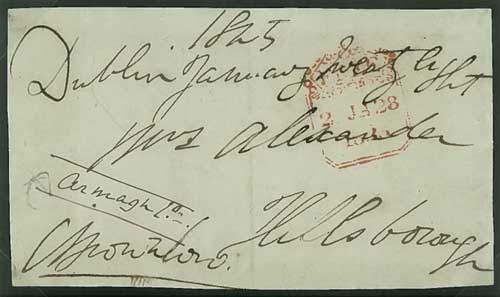 1825
Dublin January twenty eight
2 JA 28
Mrs Alexander
Armagh
Hillsborough